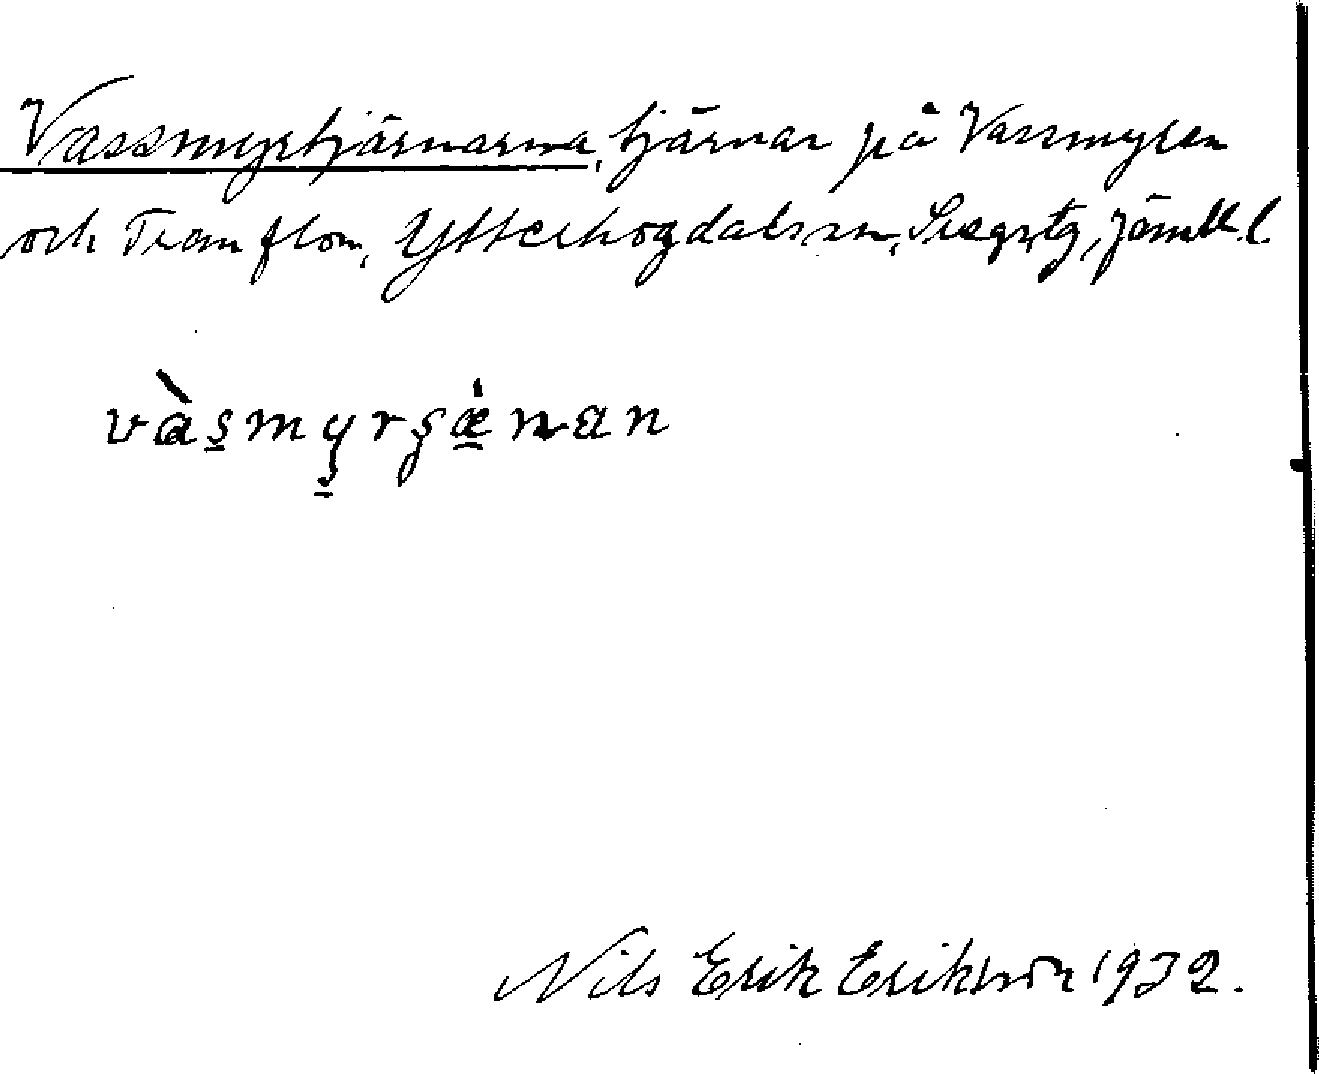 Vassmyrtjärnarna, tjärnar på Vassmyren
och Tranflon, Ytterhogdals sn, Svegs tg, Jämtl. l
vàsmyrʂænan
Nils Erik Erikson 1932.